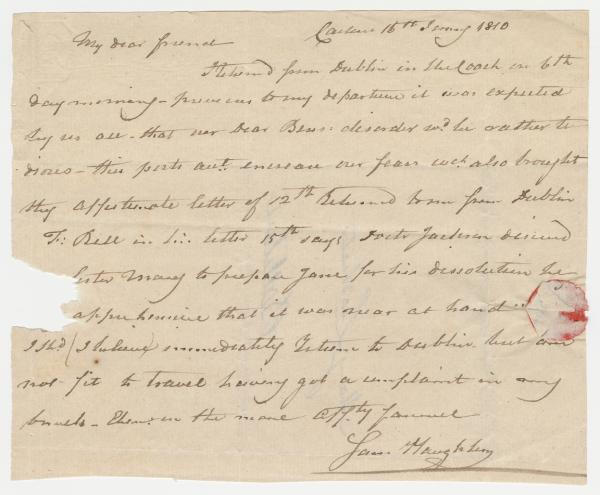 Carlow 16th Jmry 1810
My dear friend
I returnd from Dublin in the Coach on 6th
day morning - previous to my departure it was expected
by us all - that our Dear Benj: disorder wd. be rather te
dious - this posts acct. encrease our fears wch. also brought
thy affectionate letter of 12th Returned home from Dublin
T: Bell in his letter 15th says Doctr Jackson desired
sister Mary to prepare Jane for his dissolution he
apprehensive that it was near at hand
I shd. (I believe) immediatly return to Dublin but am
not fit to travel having got a complaint in my
bowels - in the mean affty farewell
Sam. Haughton